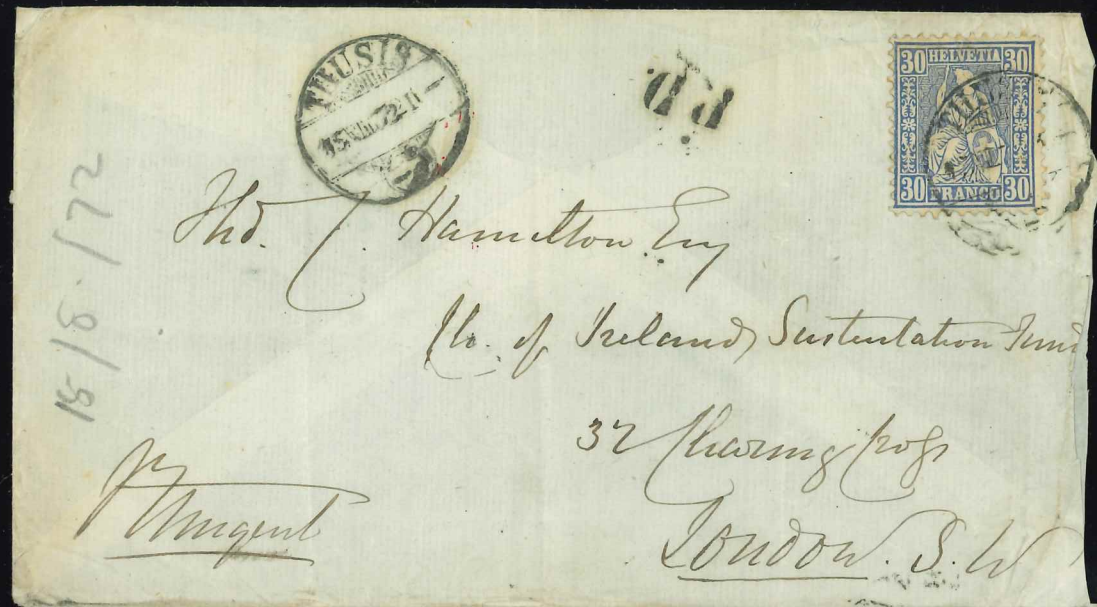 THUSIS
15 VIII 72
P.D.
30 HELVETIA 30
30 FRANCO 30
Thos. C Hamilton Esq
Ch. of Ireland Sustentation Fund
32 Charing Cross
London. S.W
15/8/72